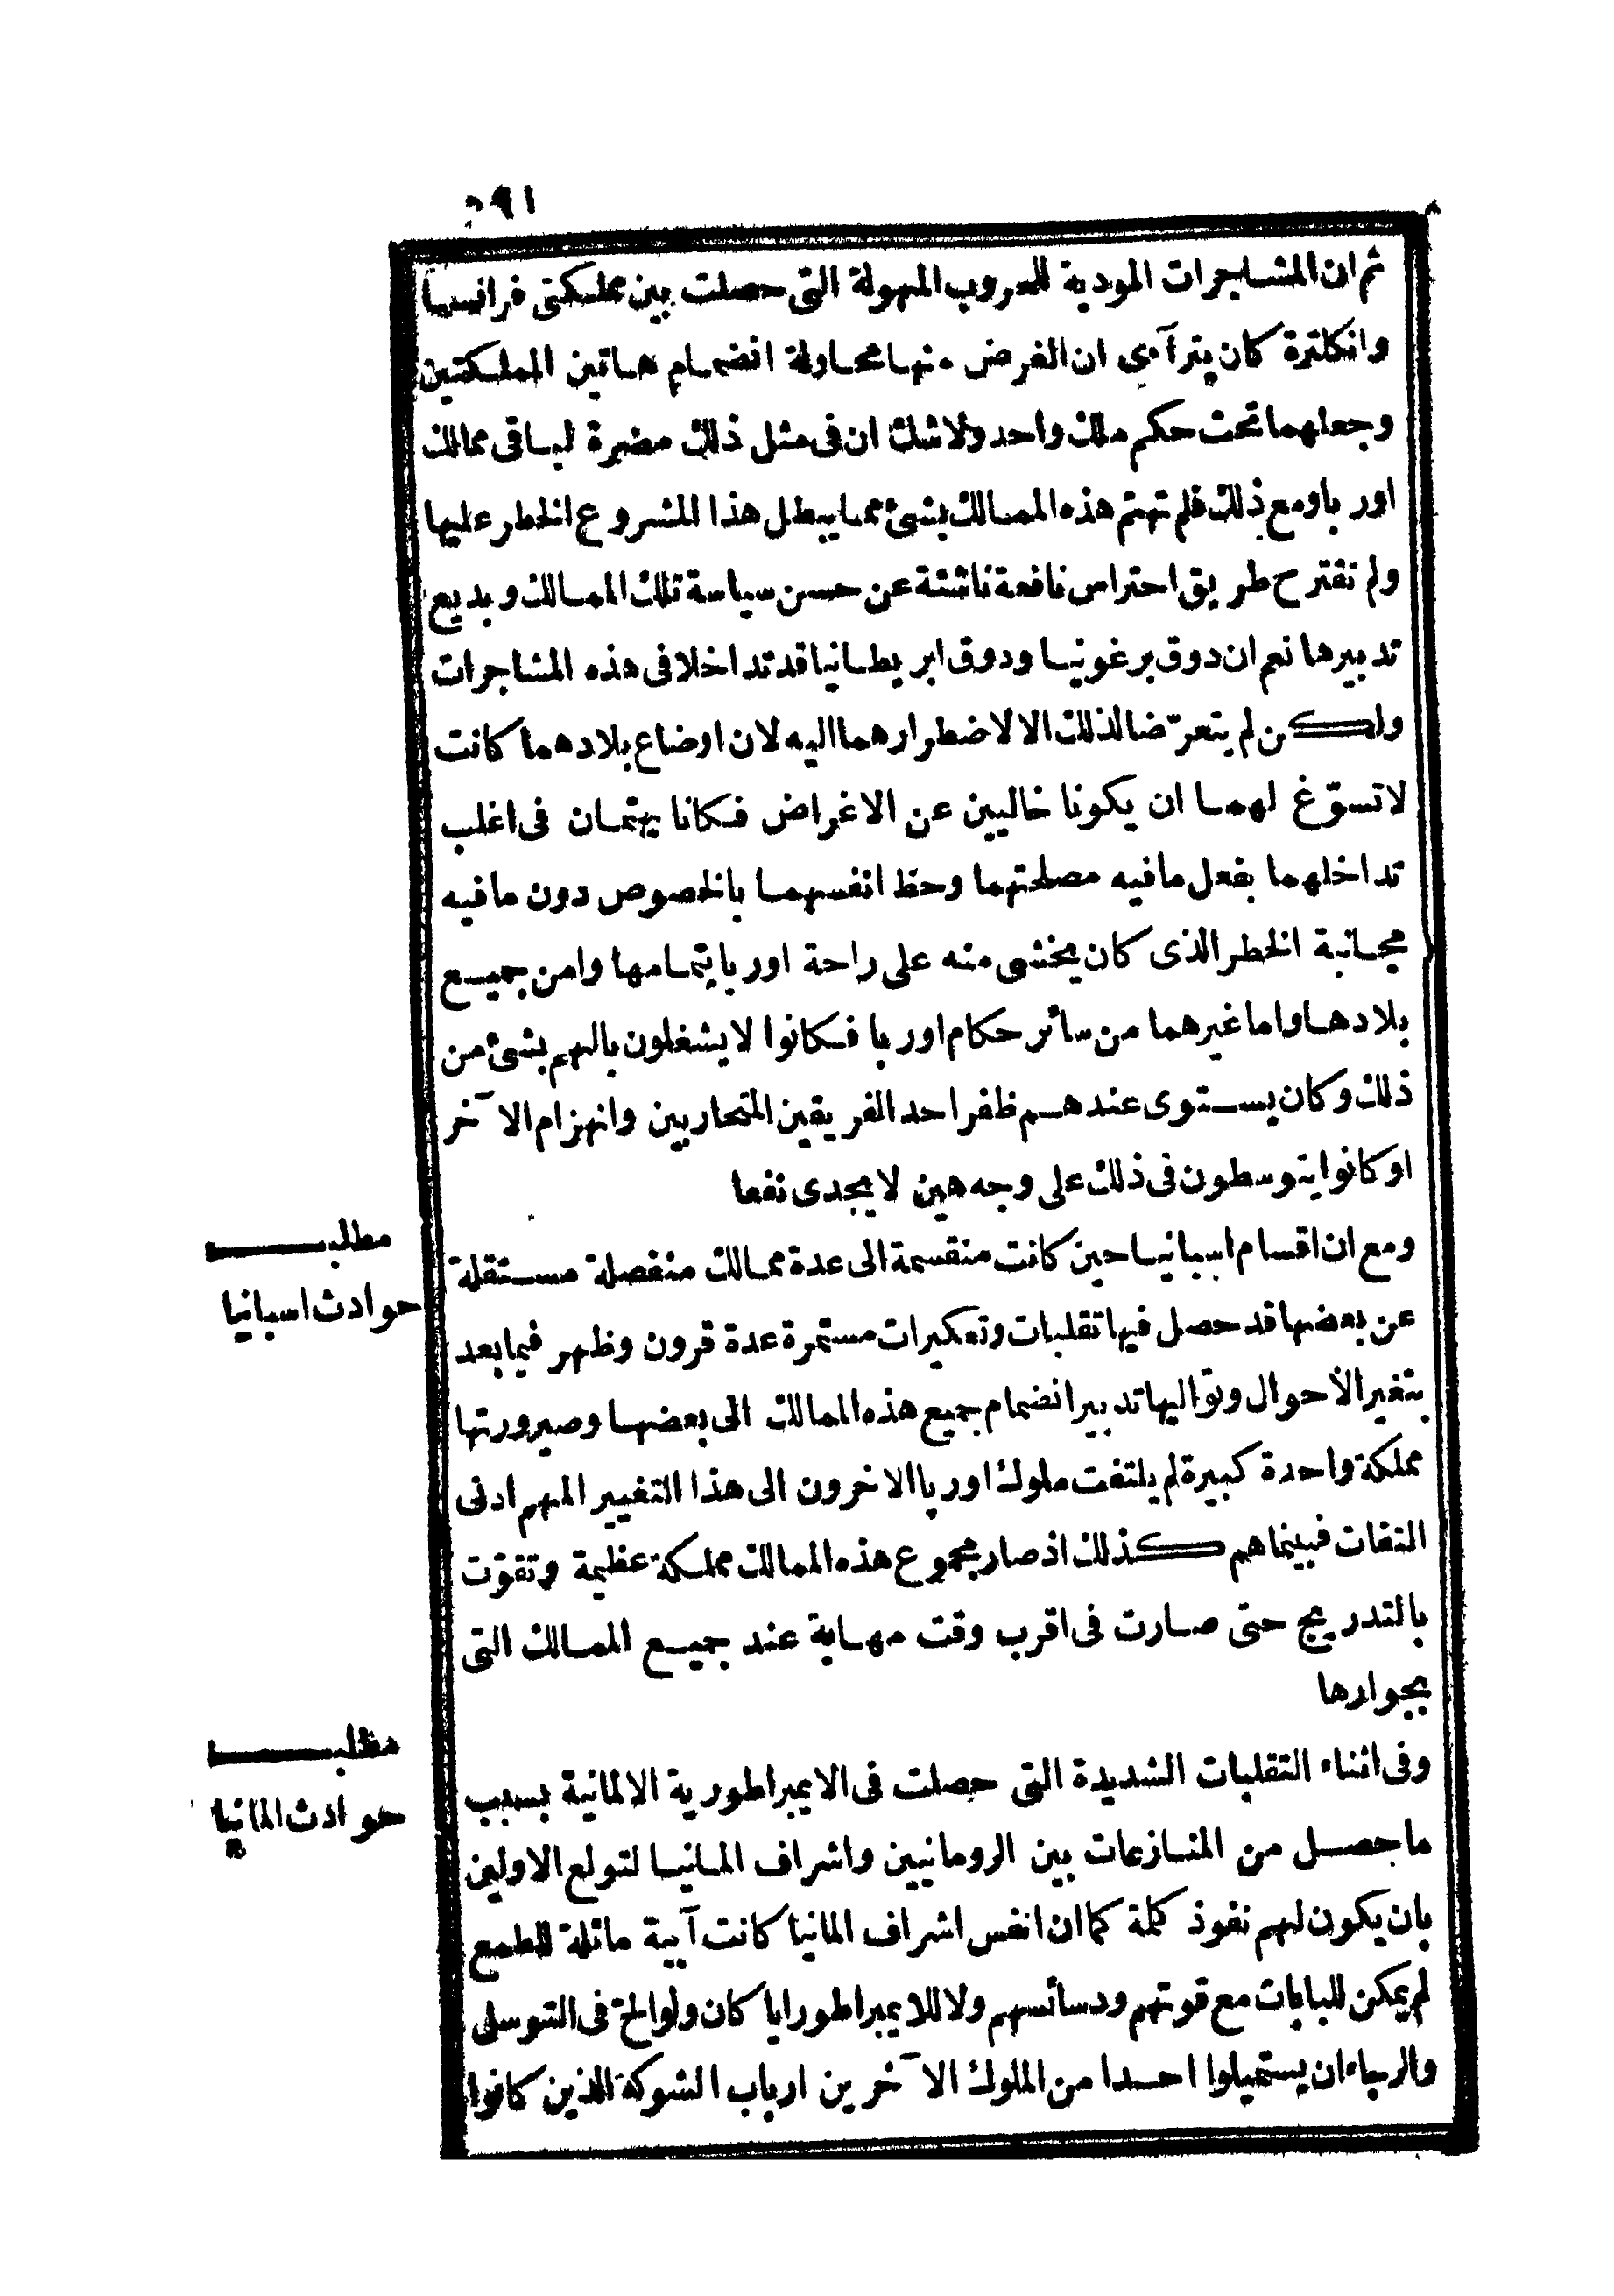 ثم ان المشاجرات المودية للحروب المهولة التى حصلت بين مملكتى فرانسا
وانكلترة كان يترآءى ان الغرض منها محاولة انضمام هاتين المملكتين
وجعلهما تحت حكم ملك واحد ولا شك ان فى مثل ذلك مضرة لباقى ممالك
اور با ومع ذلك فلم تهتم هذه الممالك بشئ مما يبطل هذا المشروع الخطر عليها
ولم تقترح طريق احتراس نافعة ناشئة عن حسن سياسة تلك الممالك وبديع
تدبيرها نعم ان دوق برغونيا ودوق ابريطانيا قد تداخلا فى هذه المشاجرات
ولكن لم يتعرّضا لذلك الا لاضطرارهما اليه لان اوضاع بلادهما كانت
لا تسوّغ لهما ان يكونا خاليين عن الاغراض فكانا يهتمان فى اغلب
تداخلهما بفعل ما فيه مصلحتهما وحظ انفسهما بالخصوص دون ما فيه
مجانبة الخطر الذى كان يخشى منه على راحة اوربا بتمامها وامن جميع
بلادها واما غيرهما من سائر حكام اوربا فكانوا لا يشغلون بالهم بشئ من
ذلك وكان يستوى عندهم ظفر احد الفريقين المتحاربين وانهزام الآخر
او كانوا يتوسطون فى ذلك على وجه هين لا يجدى نفعا
مطلب
حوادث اسبانيا
ومع ان اقسام اسبانيا حين كانت منقسمة الى عدة ممالك منفصلة مستقلة
عن بعضها قد حصل فيها تقلبات وتعكيرات مستمرة عدة قرون وظهر فيما بعد
بتغير الاحوال وتواليها تدبير انضمام جميع هذه الممالك الى بعضها وصيرورتها
مملكة واحدة كبيرة لم يلتفت ملوك اورپا الاخرون الى هذا التغيير المهم ادنى
التفات فبينما هم كذلك اذ صار مجموع هذه الممالك مملكة عظيمة وتقوّت
بالتدريج حتى صارت فى اقرب وقت مهابة عند جميع الممالك التى
بجوارها
مطلب
حوادث المانيا
وفى اثناء التقلبات الشديدة التى حصلت فى الايمبراطورية الالمانية بسبب
ما حصل من المنازعات بين الرومانيين واشراف المانيا لتولع الاولين
بان يكون لهم نفوذ كلمة كما ان انفس اشراف المانيا كانت آبية مائلة للطمع
لم يمكن للبابات مع قوتهم ودسائسهم ولا للايمبراطور ايا كان ولو الح فى التوسل
والرجاء ان يستميلوا احدا من الملوك الآخرين ارباب الشوكة الذين كانوا